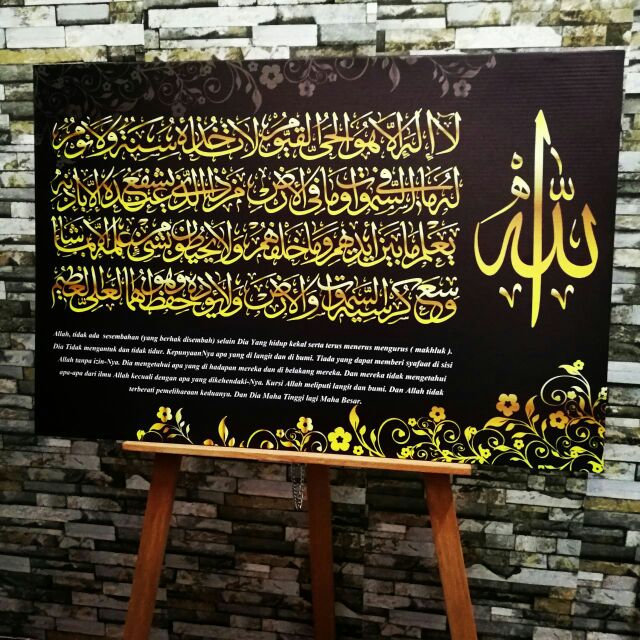 الله
لا إله إلا هو الحي القيوم لا تأخذه سنة ولا نوم
له ما في السموات وما في الأرض من ذا الذي يشفع عنده إلا بإذنه
يعلم ما بين أيديهم وما خلفهم ولا يحيطون بشيء من علمه إلا بما شاء
وسع كرسيه السموات والأرض ولا يؤده حفظهما وهو العلي العظيم
Allah, tidak ada sesembahan (yang berhak disembah) selain Dia Yang hidup kekal serta terus menerus mengurus ( makhluk ).
Dia Tidak mengantuk dan tidak tidur. KepunyaanNya apa yang di langit dan di bumi. Tiada yang dapat memberi syafaat di sisi
Allah tanpa izin-Nya. Dia mengetahui apa yang di hadapan mereka dan di belakang mereka. Dan mereka tidak mengetahui
apa-apa dari ilmu Allah kecuali dengan apa yang dikehendaki-Nya. Kursi Allah meliputi langit dan bumi. Dan Allah tidak
terberati pemeliharaan keduanya. Dan Dia Maha Tinggi lagi Maha Besar.